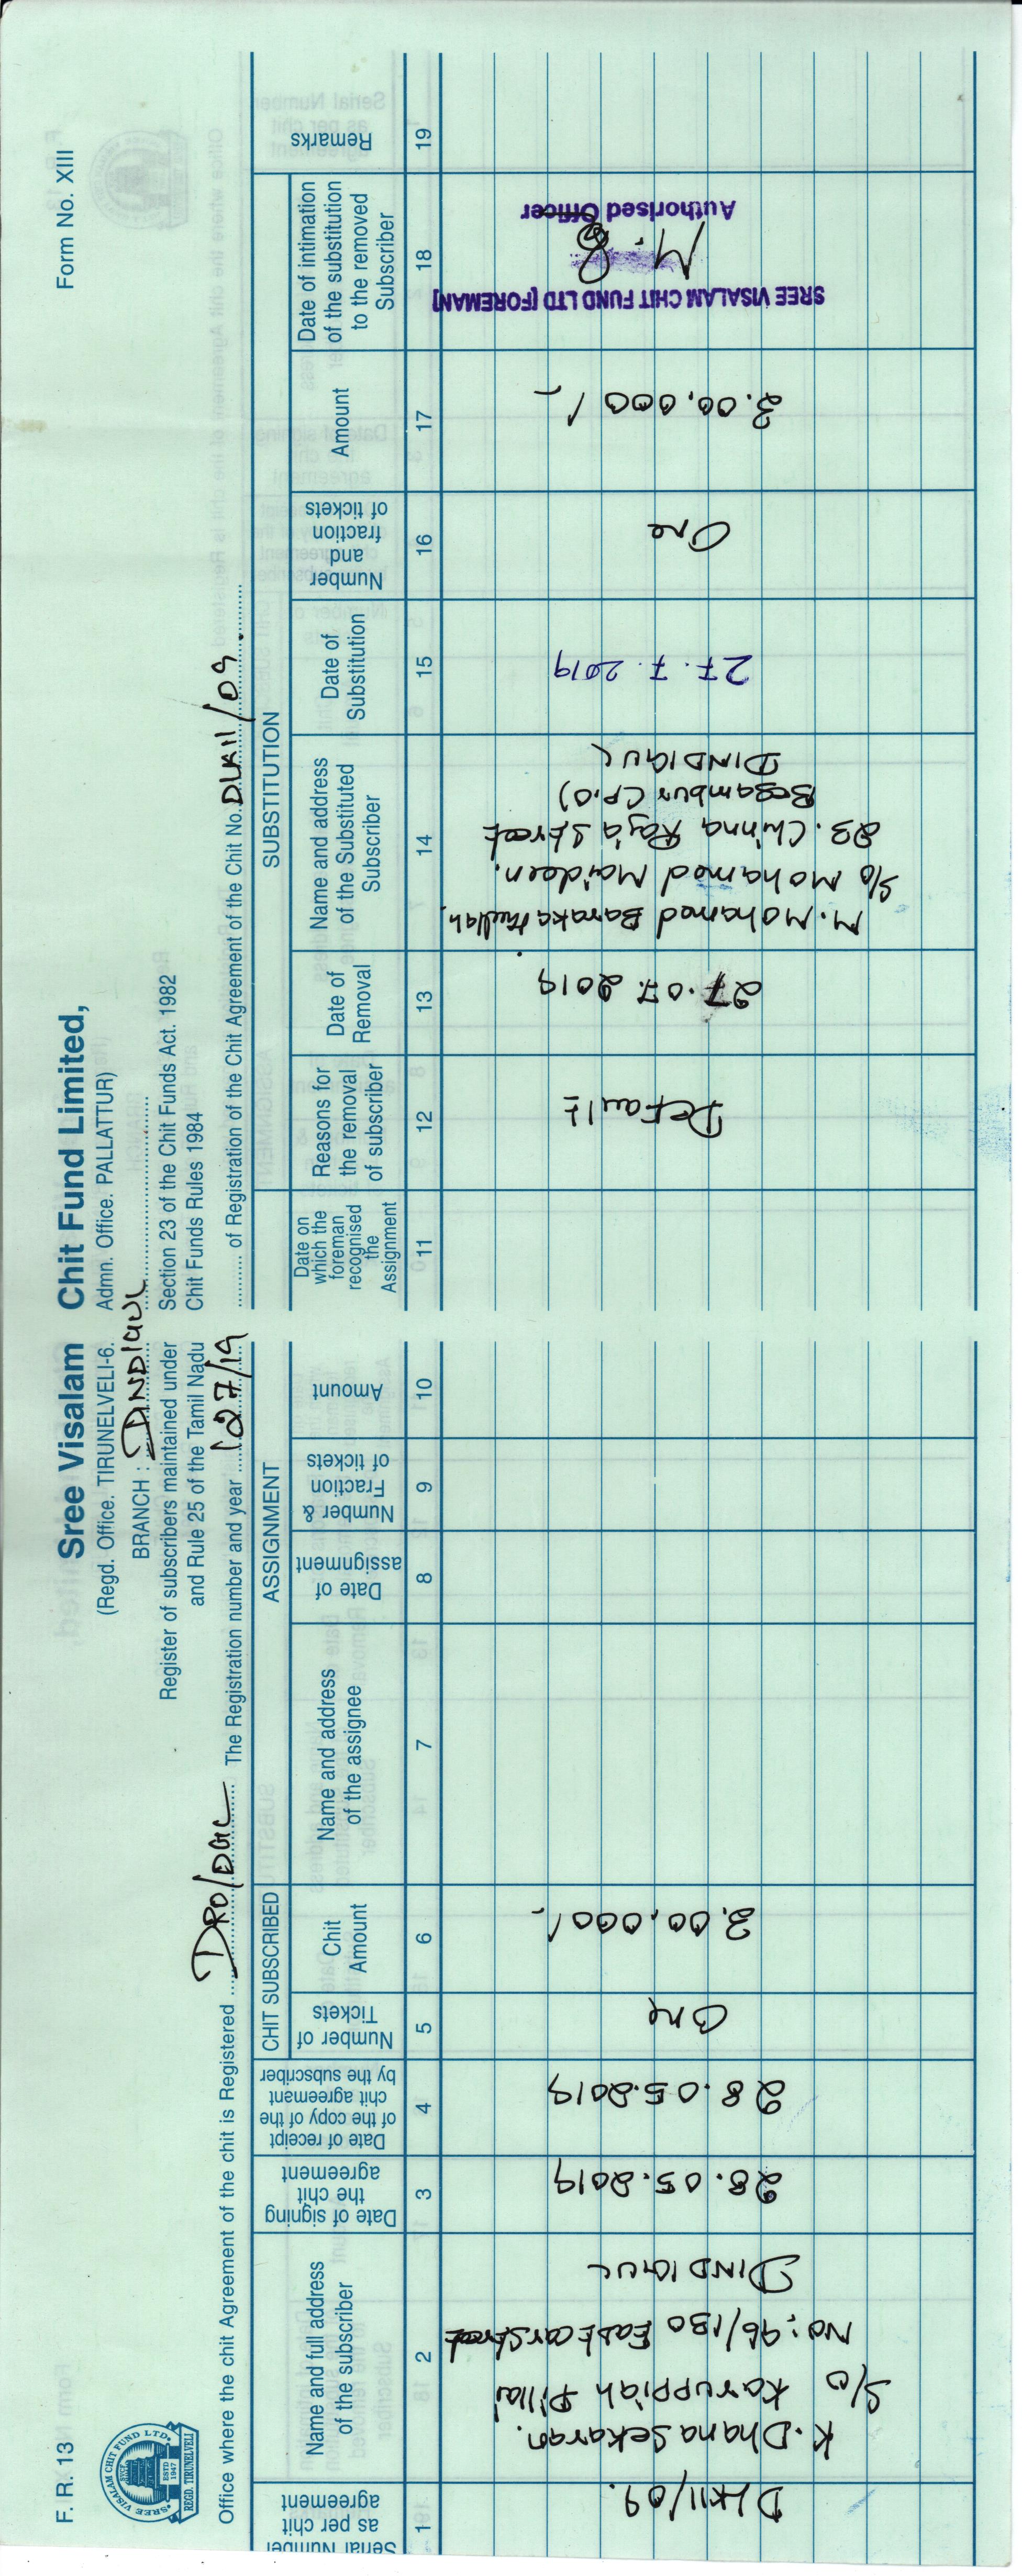 F. R. 13
Form No. XIII
SREE VISALAM CHIT FUND LTD.
ESTD 1947
REGD. TIRUNELVELI
Sree Visalam Chit Fund Limited,
(Regd. Office. TIRUNELVELI-6. Admn. Office. PALLATTUR)
BRANCH : DINDIGUL
Register of subscribers maintained under Section 23 of the Chit Funds Act. 1982
and Rule 25 of the Tamil Nadu Chit Funds Rules 1984
Office where the chit Agreement of the chit is Registered DRO/DGL The Registration number and year 127/19 of Registration of the Chit Agreement of the Chit No. DLK11/09.
Serial Number
as per chit
agreement
Name and full address
of the subscriber
Date of signing
the chit
agreement
Date of receipt
of the copy of the
chit agreemant
by the subscriber
CHIT SUBSCRIBED
Number of
Tickets
Chit
Amount
ASSIGNMENT
Name and address
of the assignee
Date of
assignment
Number &
Fraction
of tickets
Amount
Date on
which the
foreman
recognised
the
Assignment
SUBSTITUTION
Reasons for
the removal
of subscriber
Date of
Removal
Name and address
of the Substituted
Subscriber
Date of
Substitution
Number
and
fraction
of tickets
Amount
Date of intimation
of the substitution
to the removed
Subscriber
Remarks
1 2 3 4 5 6 7 8 9 10 11 12 13 14 15 16 17 18 19
DLK11/09.
K. Dhana Sekaran.
S/o Karuppiah Pillai
No: 96/130 East car Street
DINDIGUL
28.05.2019
28.05.2019
One
3.00,000/-
Default
27.07.2019
M. Mohamed Barakathullah.
S/o Mohamed Maideen.
23. Chinna Raja Street
Begambur (P.O)
DINDIGUL
27.7.2019
One
3.00,000/-
SREE VISALAM CHIT FUND LTD [FOREMAN]
Authorised Officer